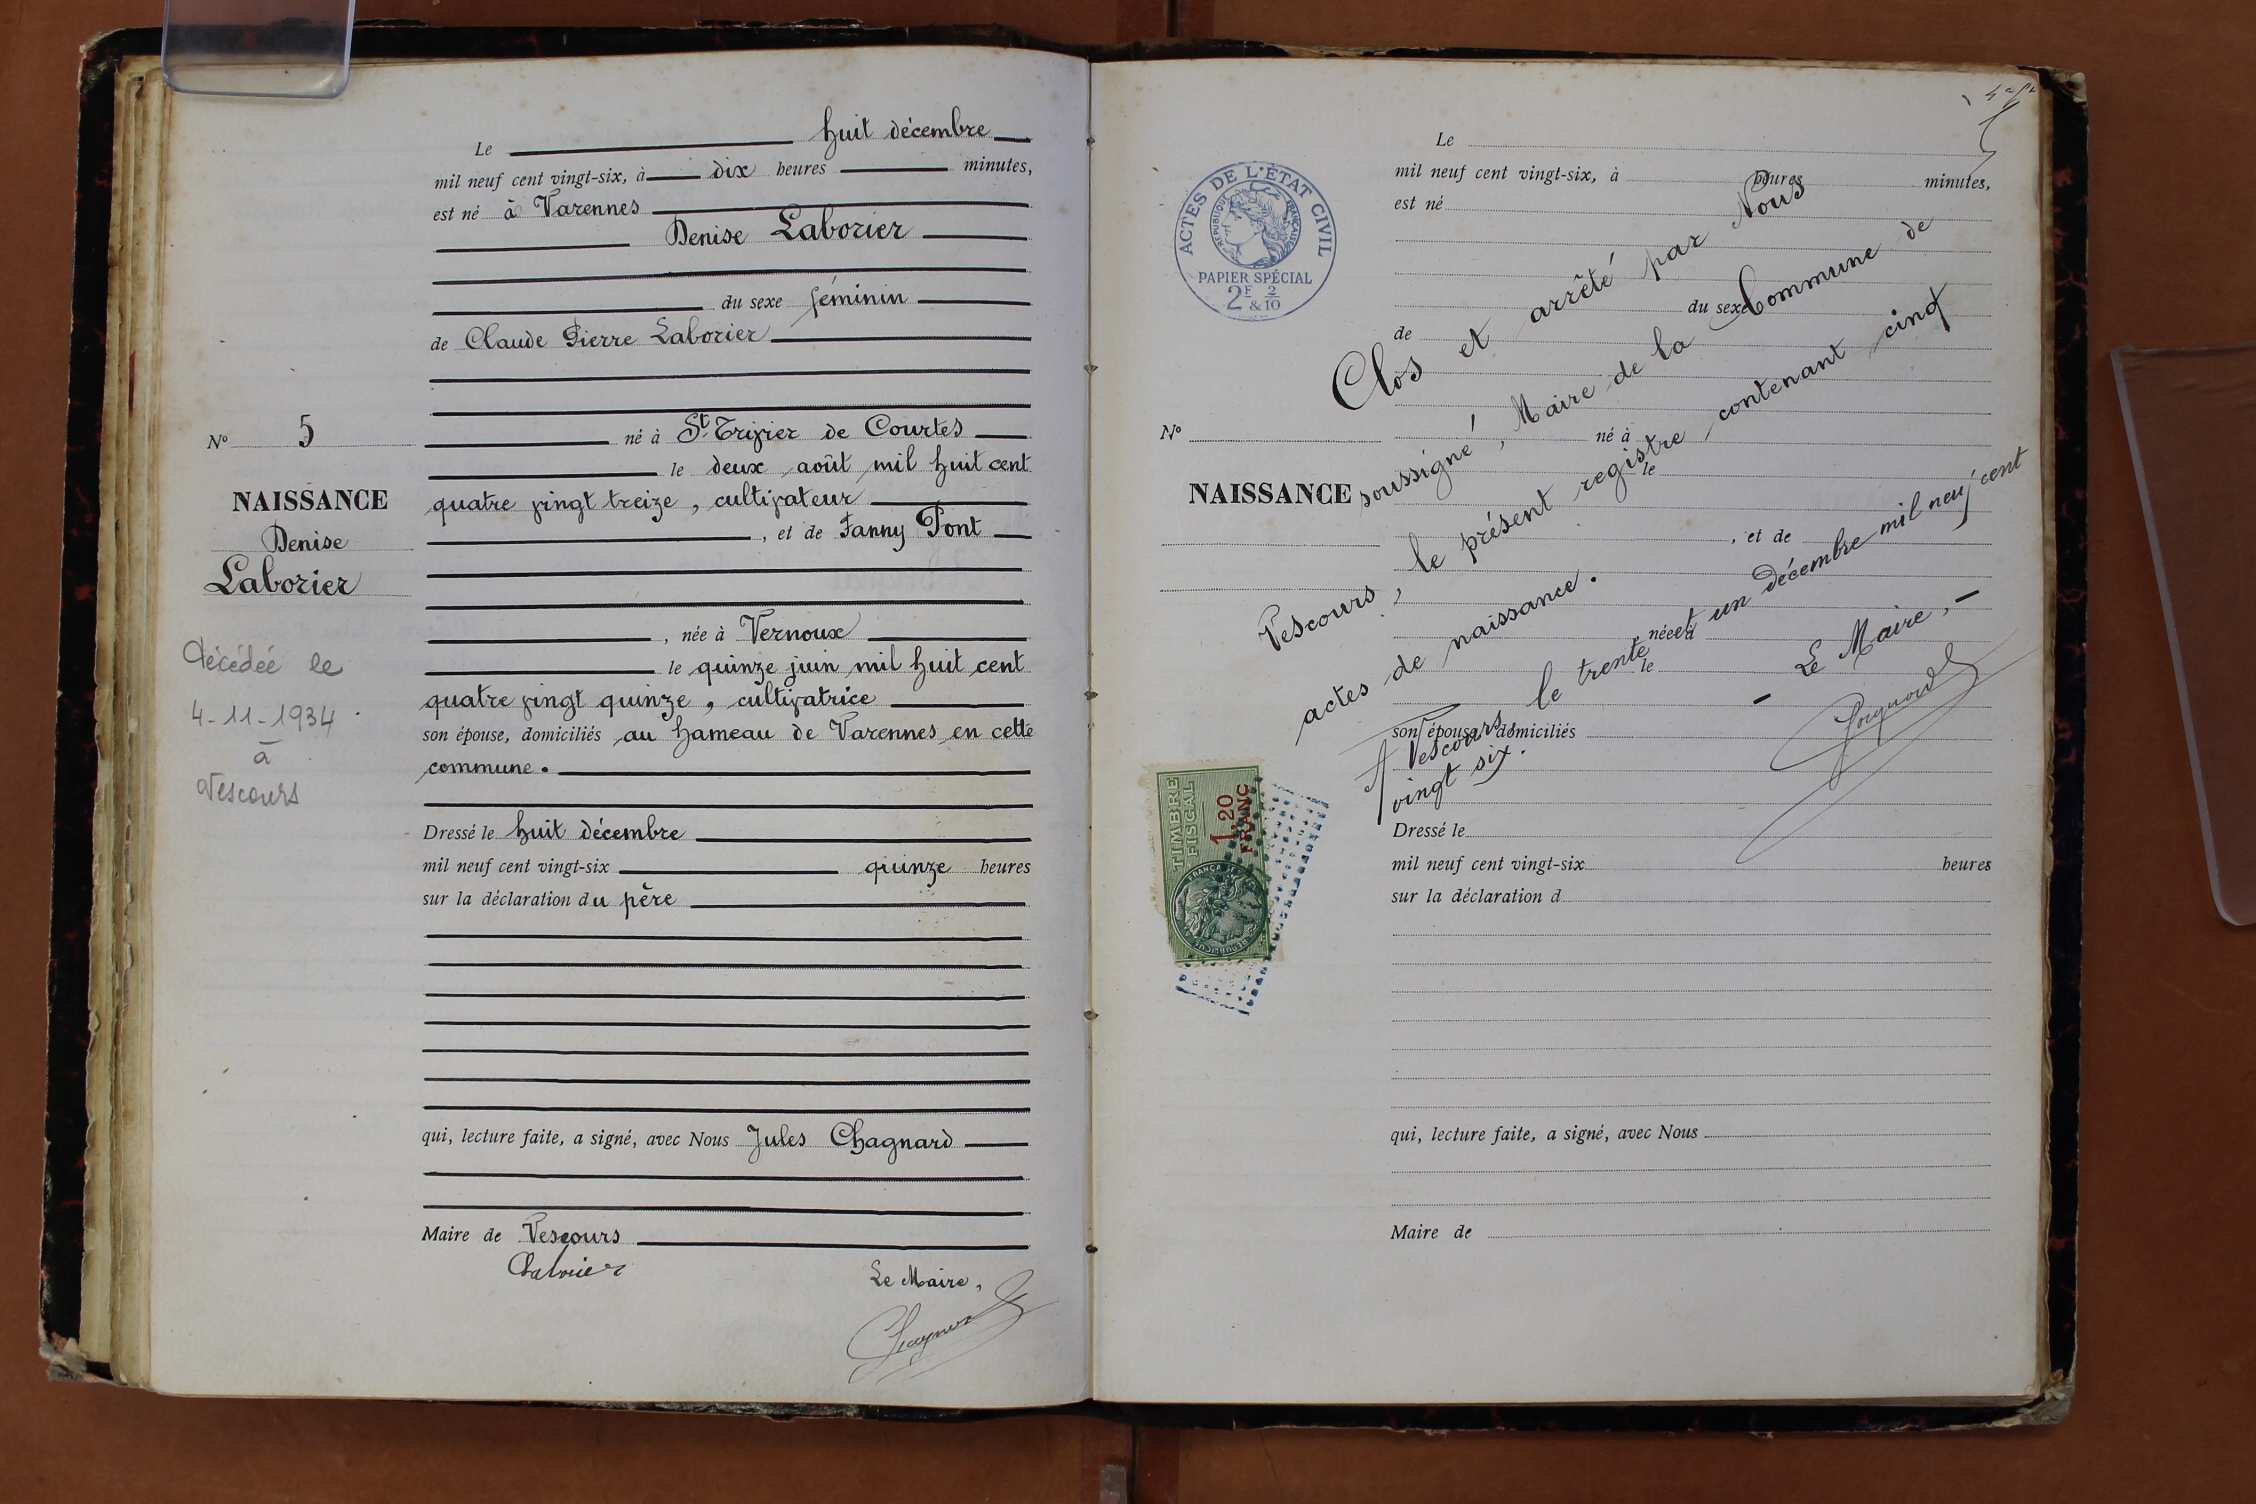 Le huit décembre
mil neuf cent vingt-six, à dix heures minutes,
est né à Varennes
Denise Laborier
du sexe féminin
de Claude Pierre Laborier
né à St. Trivier de Courtes
le deux août mil huit cent
quatre vingt treize, cultivateur
, et de Fanny Pont
, née à Vernoux
le quinze juin mil huit cent
quatre vingt quinze, cultivatrice
son épouse, domiciliés au hameau de Varennes en cette
commune.
Dressé le huit décembre
mil neuf cent vingt-six quinze heures
sur la déclaration du père
qui, lecture faite, a signé, avec Nous Jules Chagnard
Maire de Vescours
Le Maire,
No 5
NAISSANCE
Denise
Laborier
Décédée le
4-11-1934
à
Vescours
ACTES DE L'ÉTAT CIVIL
RÉPUBLIQUE FRANÇAISE
PAPIER SPÉCIAL
2F & 2/10
No
NAISSANCE
TIMBRE
FISCAL
1,20
FRANC
Le
mil neuf cent vingt-six, à heures minutes,
est né
du sexe
de
né à
le
, et de
, née à
le
son épouse, domiciliés
Dressé le
mil neuf cent vingt-six heures
sur la déclaration d
qui, lecture faite, a signé, avec Nous
Maire de
Clos et arrêté par Nous
soussigné, Maire de la Commune de
Vescours, le présent registre contenant cinq
actes de naissance.
A Vescours, le trente et un Décembre mil neuf cent
vingt six.
Le Maire,